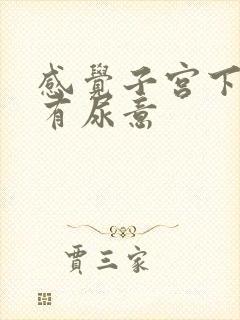 感覺子宮下
有尿意
賈三家